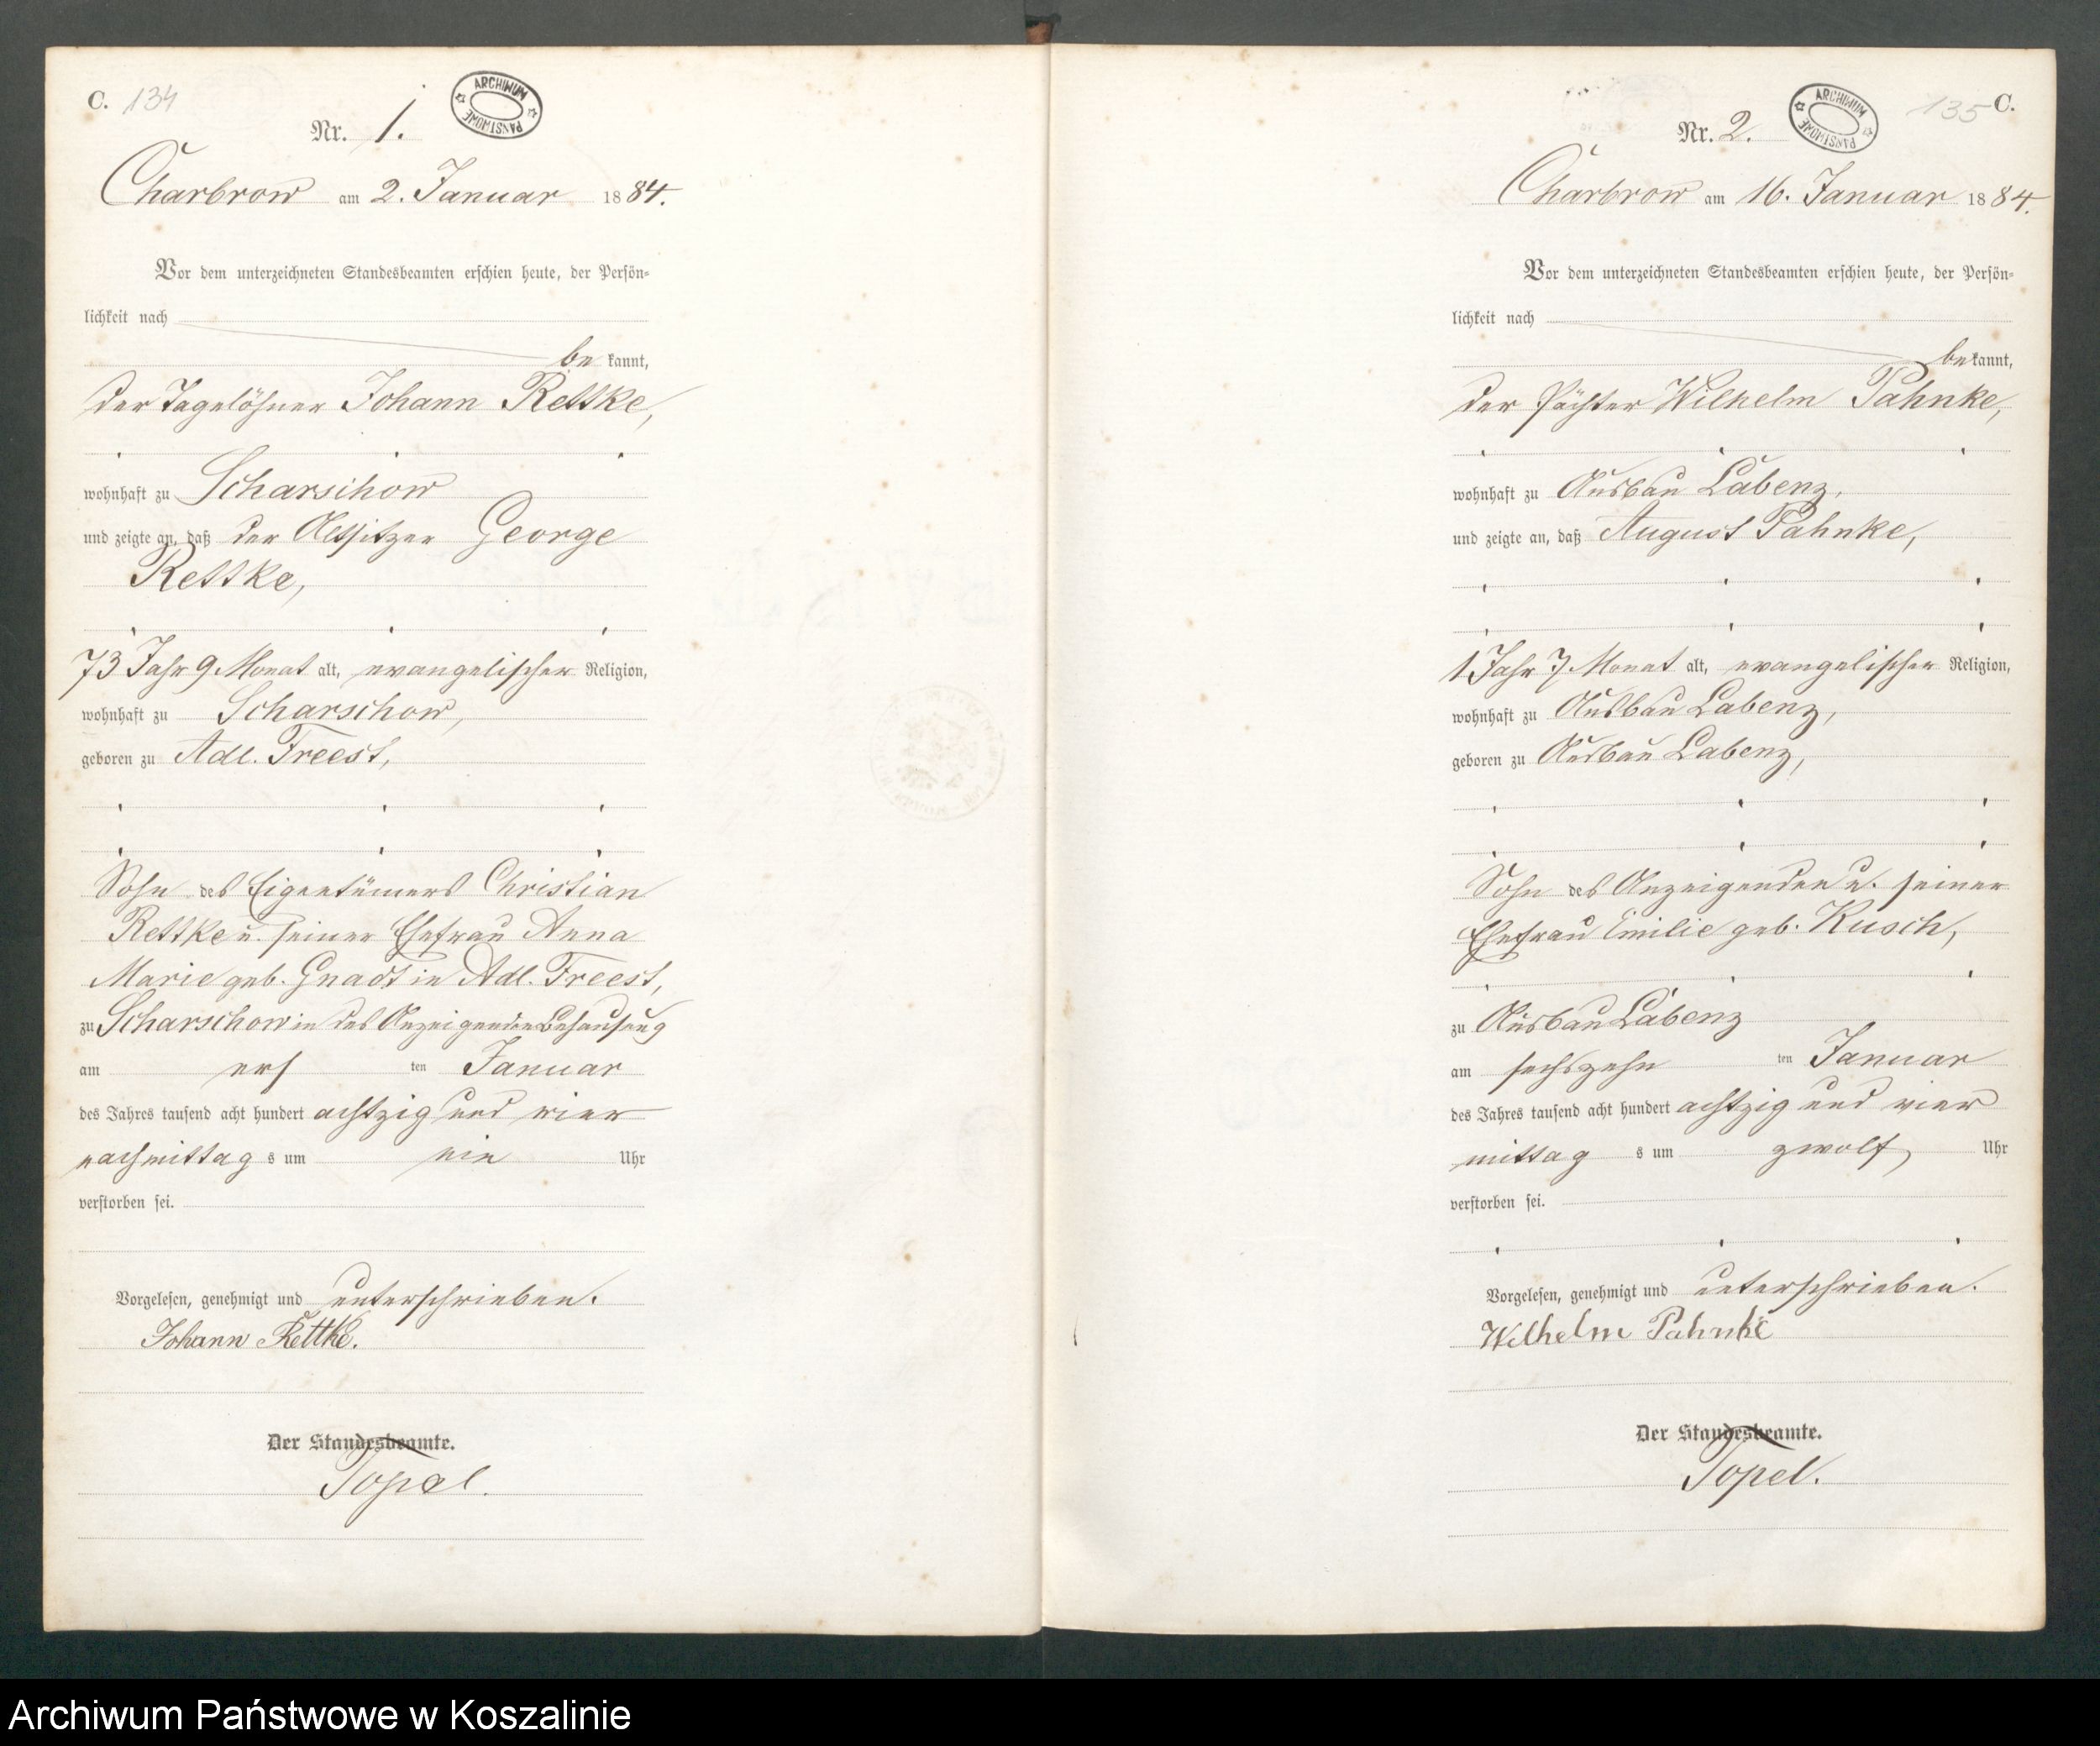 C. 134
Nr. 1.
ARCHIWUM PAŃSTWOWE
Charbrow am 2. Januar 1884.
Vor dem unterzeichneten Standesbeamten erschien heute, der Persön-
lichkeit nach
be kannt,
der Tagelöhner Johann Rettke,
wohnhaft zu Scharschow
und zeigte an, daß der Altsitzer George
Rettke,
73 Jahr 9 Monat alt, evangelischer Religion,
wohnhaft zu Scharschow,
geboren zu Adl. Freest,
Sohn des Eigentümers Christian
Rettke u. seiner Ehefrau Anna
Marie geb. Gnadt in Adl. Freest,
zu Scharschow in des Anzeigenden Behausung
am ers ten Januar
des Jahres tausend acht hundert achtzig und vier
nachmittag s um ein Uhr
verstorben sei.
Vorgelesen, genehmigt und unterschrieben.
Johann Rettke.
Der Standesbeamte.
Topel.
135 C.
Nr. 2.
ARCHIWUM PAŃSTWOWE
Charbrow am 16. Januar 1884.
Vor dem unterzeichneten Standesbeamten erschien heute, der Persön-
lichkeit nach
be kannt,
der Pächter Wilhelm Pahnke,
wohnhaft zu Ausbau Labenz,
und zeigte an, daß August Pahnke,
1 Jahr 7 Monat alt, evangelischer Religion,
wohnhaft zu Ausbau Labenz,
geboren zu Ausbau Labenz,
Sohn des Anzeigenden u. seiner
Ehefrau Emilie geb. Kusch,
zu Ausbau Labenz
am sechszehn ten Januar
des Jahres tausend acht hundert achtzig und vier
mittag s um zwölf, Uhr
verstorben sei.
Vorgelesen, genehmigt und unterschrieben.
Wilhelm Pahnke
Der Standesbeamte.
Topel.
Archiwum Państwowe w Koszalinie